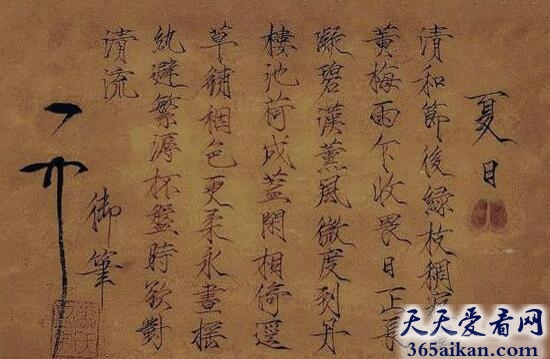 夏日
清和節後綠枝稠寂
黃梅雨乍收畏日正長
凝碧漢薰風微度到丹
樓池荷成蓋閑相倚逕
草鋪裀色更柔永晝搖
紈避繁溽杯盤時欲對
清流
御筆
天天爱看网
365aikan.com